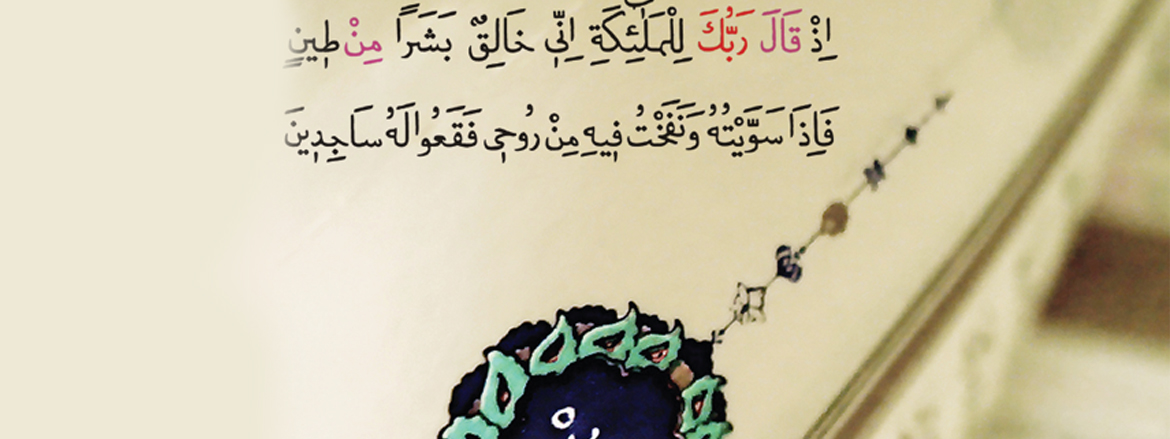 اِذْ قَالَ رَبُّكَ لِلْمَلٰٓئِكَةِ اِنّ۪ي خَالِقٌ بَشَرًا مِنْ ط۪ينٍ
فَاِذَا سَوَّيْتُهُ وَنَفَخْتُ ف۪يهِ مِنْ رُوح۪ي فَقَعُوا لَهُ سَاجِد۪ينَ